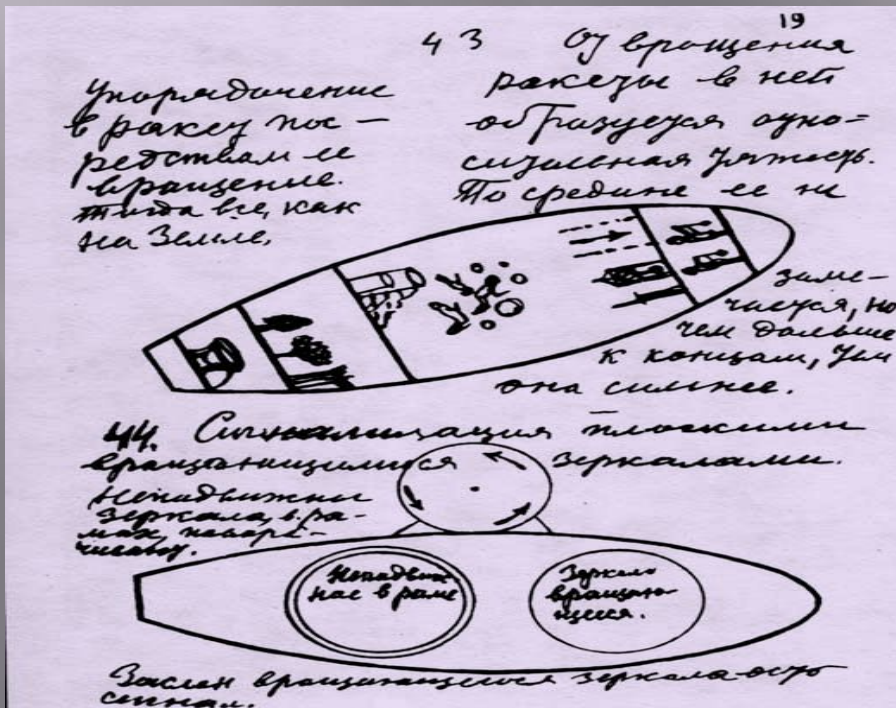 19
43
Упорядочение
в ракет пос-
редствам ее
вращение.
тогда все, как
на Земле.
От вращения
ракеты в ней
образуется отно=
сительная тяжесть.
По средине ее не
заме-
чается, но
чем дальше
к концам, тем
она сильнее.
44. Сигнализация плоскими
вращающимися зеркалами.
Неподвижны
зеркала, в ра-
мах, повора-
чивают.
Неподвиж
ное в раме
Зеркало
вращаю-
щееся.
Заслон вращающегося зеркала есть
сигнал.